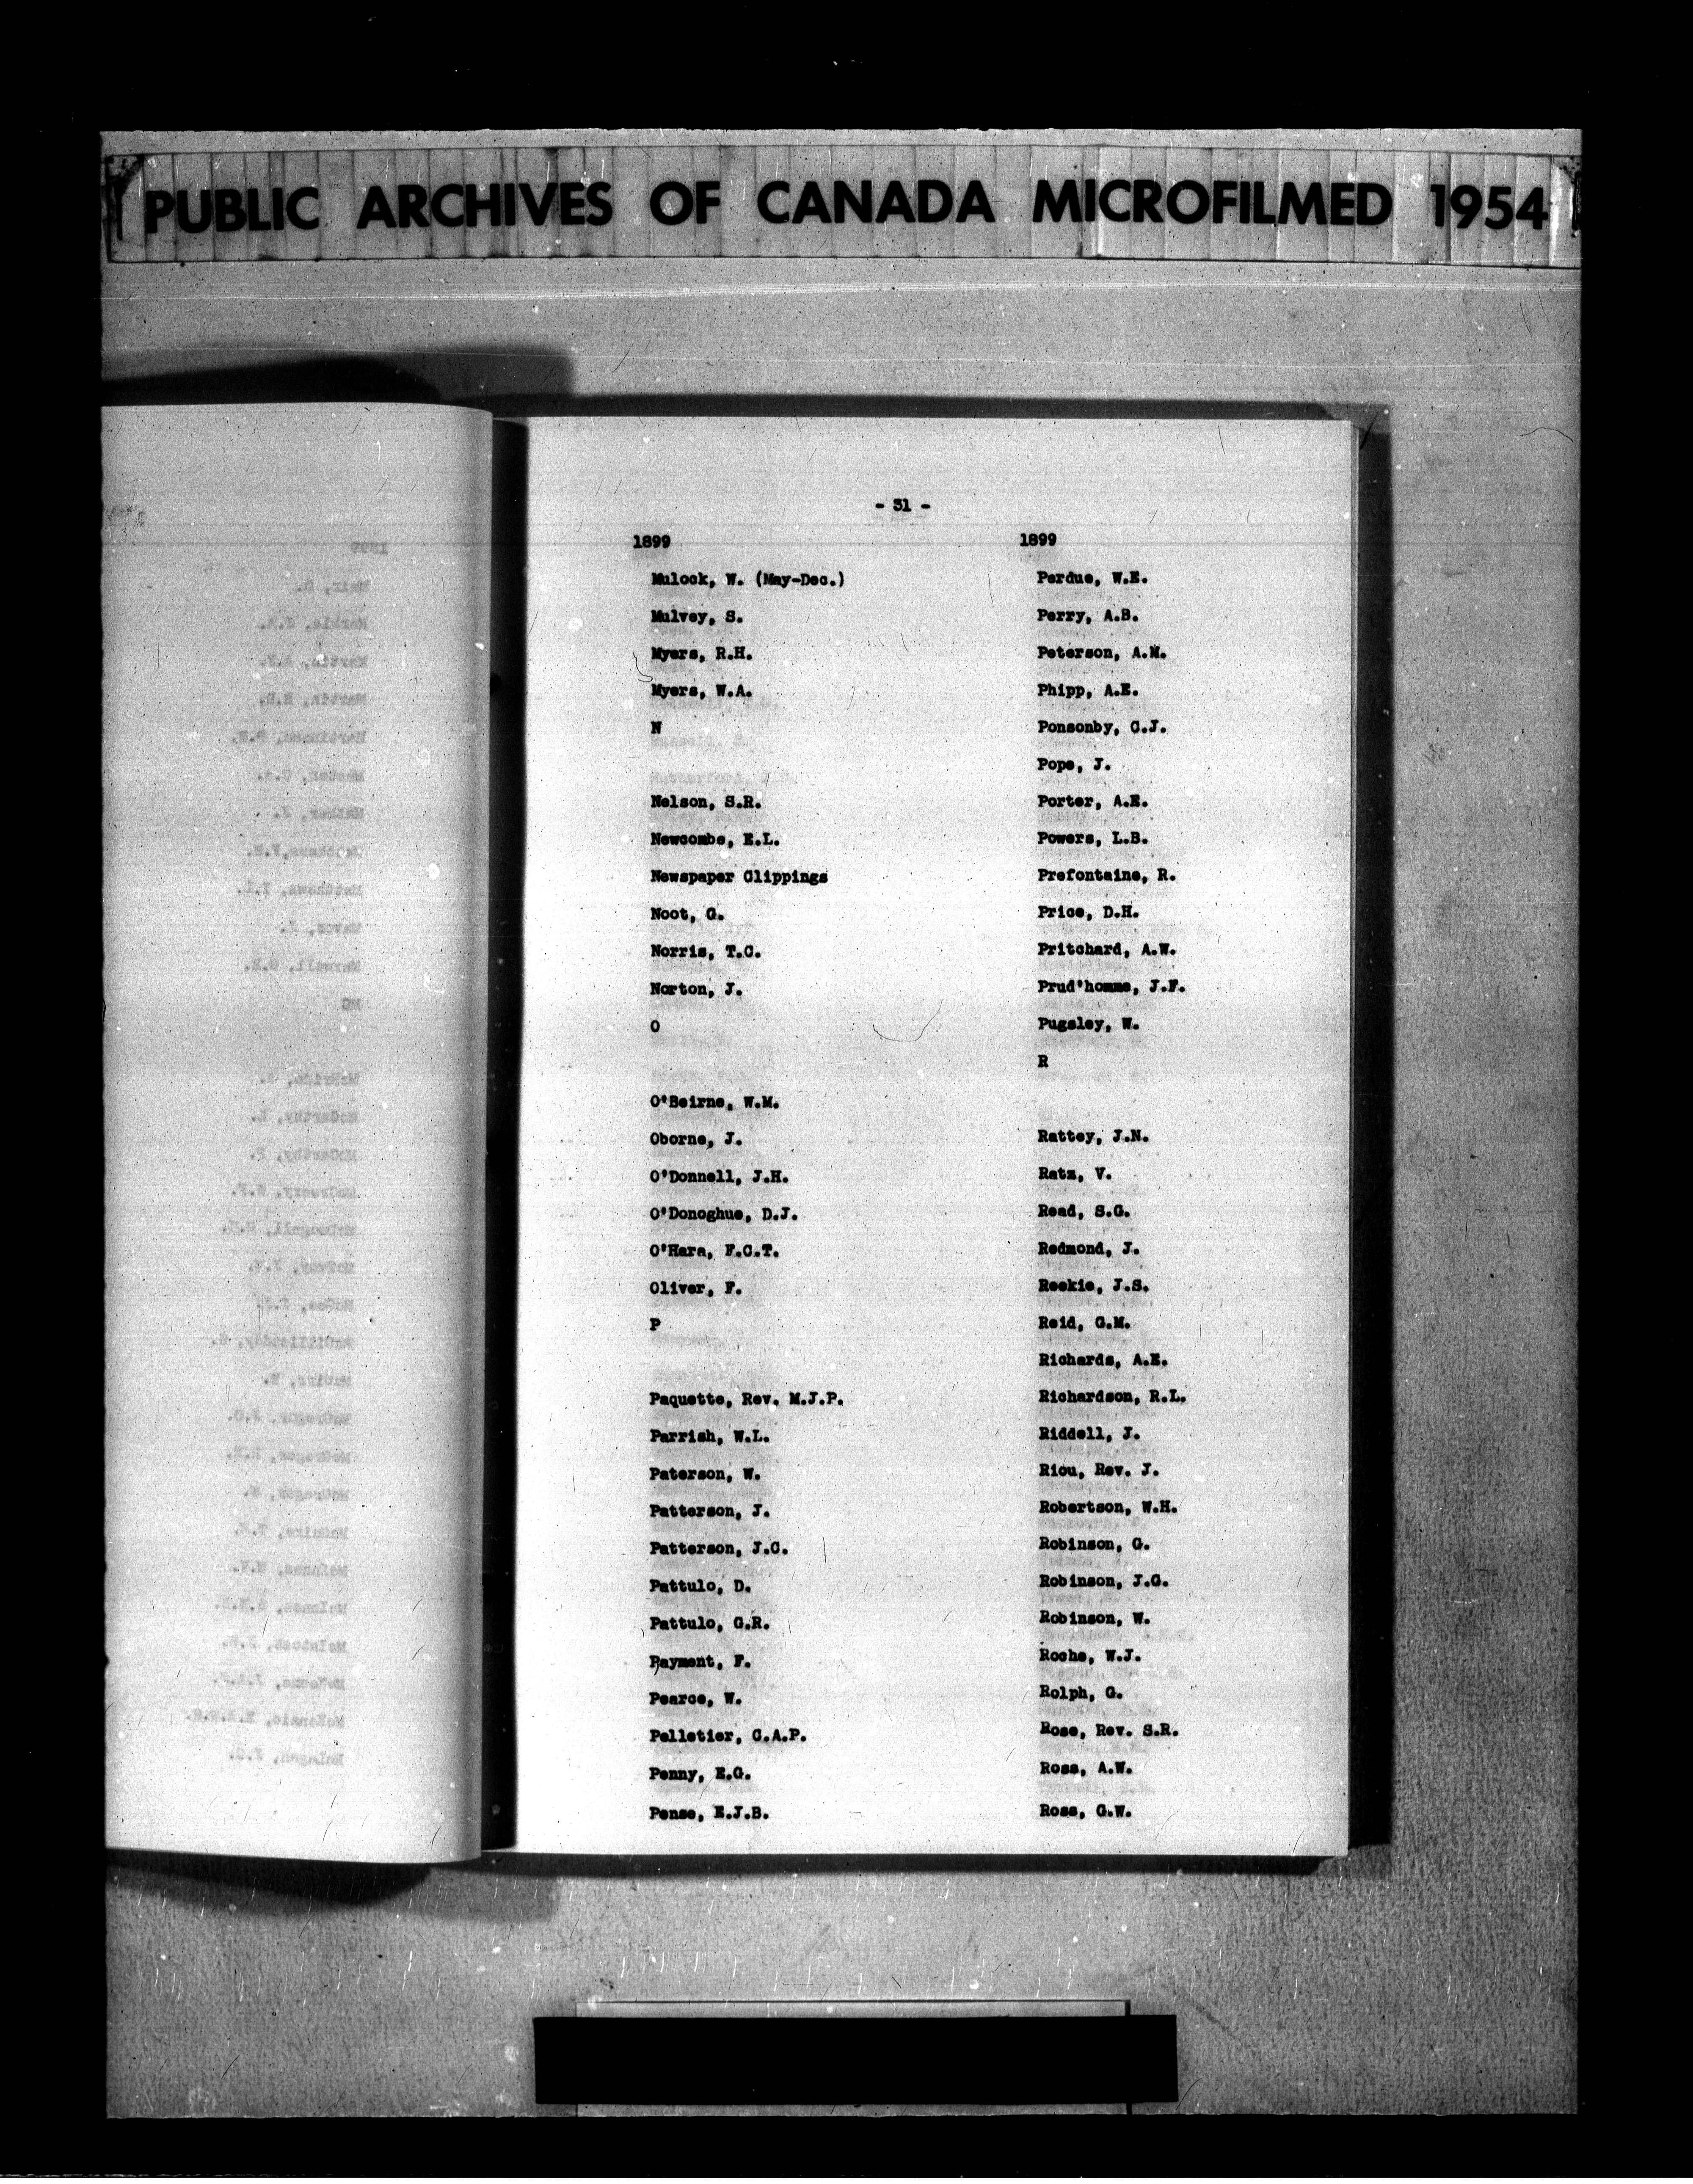 PUBLIC ARCHIVES OF CANADA MICROFILMED 1954
- 31 -
1899
Mulock, W. (May-Dec.)
Mulvey, S.
Myers, R.H.
Myers, W.A.
N
Nelson, S.R.
Newcombe, E.L.
Newspaper Clippings
Noot, G.
Norris, T.C.
Norton, J.
O
O'Beirne, W.M.
Oborne, J.
O'Donnell, J.H.
O'Donoghue, D.J.
O'Hara, F.C.T.
Oliver, F.
P
Paquette, Rev. M.J.P.
Parrish, W.L.
Paterson, W.
Patterson, J.
Patterson, J.C.
Pattulo, D.
Pattulo, G.R.
Payment, F.
Pearce, W.
Pelletier, C.A.P.
Penny, E.G.
Pense, E.J.B.
1899
Perdue, W.E.
Perry, A.B.
Peterson, A.M.
Phipp, A.E.
Ponsonby, C.J.
Pope, J.
Porter, A.E.
Powers, L.B.
Prefontaine, R.
Price, D.H.
Pritchard, A.W.
Prud'homme, J.F.
Pugsley, W.
R
Rattey, J.N.
Ratz, V.
Read, S.G.
Redmond, J.
Reekie, J.S.
Reid, G.M.
Richards, A.E.
Richardson, R.L.
Riddell, J.
Riou, Rev. J.
Robertson, W.H.
Robinson, G.
Robinson, J.G.
Robinson, W.
Roche, W.J.
Rolph, G.
Rose, Rev. S.R.
Ross, A.W.
Ross, G.W.